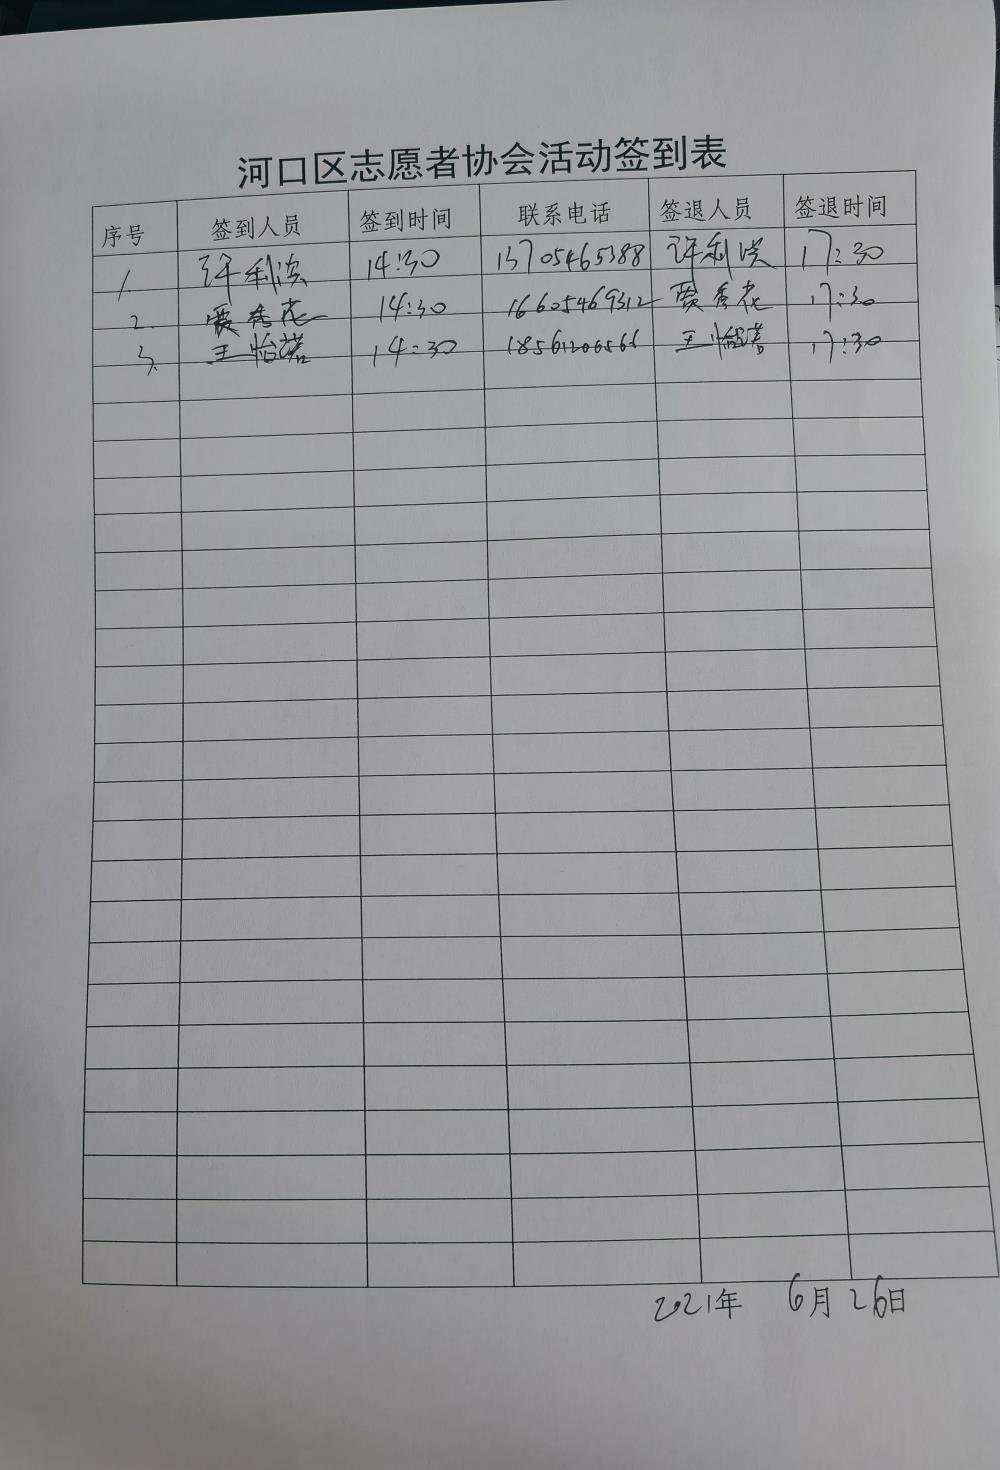 河口区志愿者协会活动签到表
序号 签到人员 签到时间 联系电话 签退人员 签退时间
1. 许利滨 14:30 13705465388 许利滨 17:30
2. 贾秀花 14:30 16605469312 贾秀花 17:30
3. 王怡诺 14:30 18561206566 王怡诺 17:30
2021年 6月26日